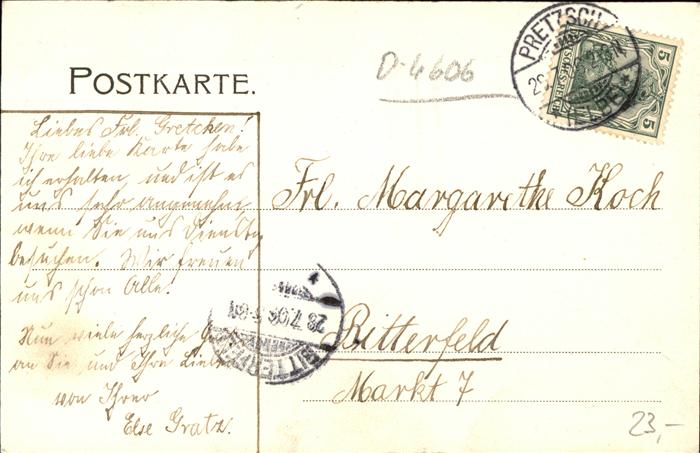 POSTKARTE.
D-4606
PRETZSCH
(ELBE)
5
5
Liebes Frl. Gretchen!
Ihre liebe Karte habe
ich erhalten, und ist es
uns sehr angenehm
wenn Sie uns Dienstag
besuchen. Wir freuen
uns schon Alle!
Nun viele herzliche
an Sie und Ihre Lieben
von Ihrer
Else Gratz.
Frl. Margarethe Koch
Bitterfeld
Markt 7
BITTERFELD
23,-